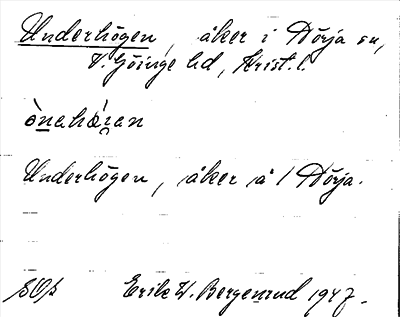 Underhögen, åker i Nörja sn,
V. Göinge hd, Krist. l.
Underhögen, åker å 1 Nörja.
Erik W. Bergenrud 1947.